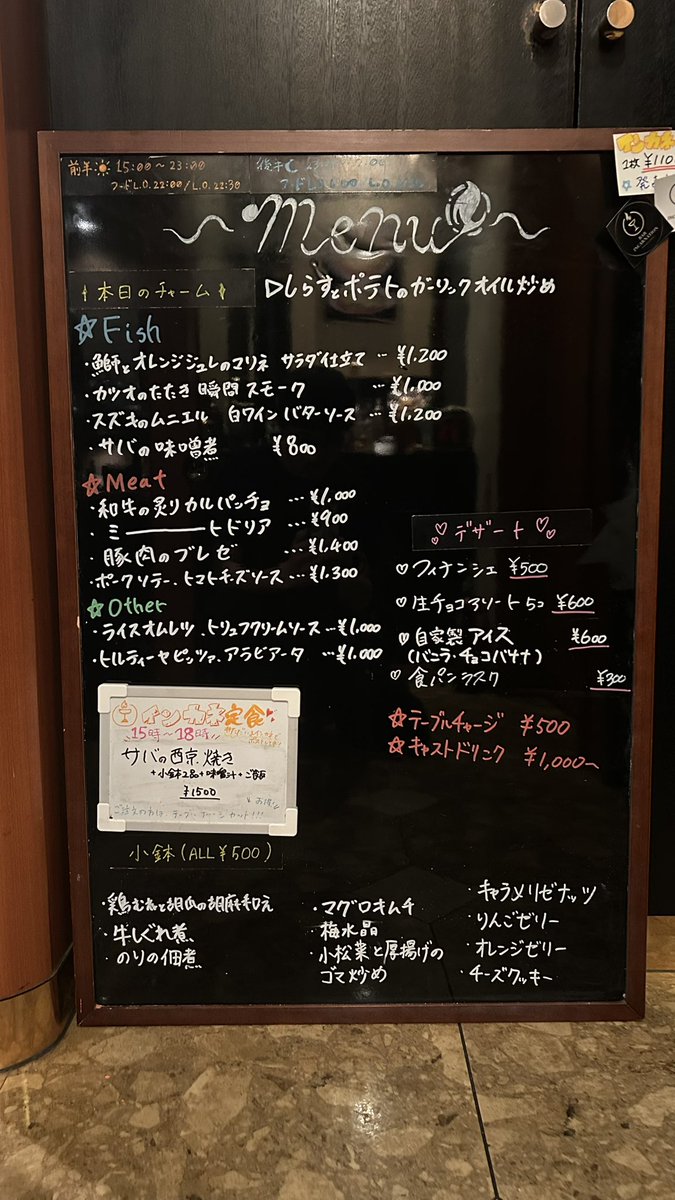 前半☀ 15:00~23:00
フードL.O. 22:00/L.O. 22:30
後半☾
Menu
本日のチャーム
▷しらすとポテトのガーリックオイル炒め
☆Fish
・鰤とオレンジジュレのマリネ サラダ仕立て … ¥1,200
・カツオのたたき 瞬間スモーク ¥1,000
・スズキのムニエル 白ワインバターソース … ¥1,200
・サバの味噌煮 ¥800
☆Meat
・和牛の炙りカルパッチョ … ¥1,000
・ミートドリア … ¥900
・豚肉のブレゼ … ¥1,400
・ポークソテー、トマトチーズソース … ¥1,300
☆Other
・ライスオムレツ、トリュフクリームソース … ¥1,000
・トルティーヤピッツァ、アラビアータ … ¥1,000
♡デザート♡
♡フィナンシェ ¥500
♡生チョコアソート5コ ¥600
♡自家製アイス ¥600
(バニラ・チョコバナナ)
♡食パンラスク ¥300
☆テーブルチャージ ¥500
☆キャストドリンク ¥1,000~
インカネ定食
15時~18時
サバの西京焼き
+小鉢2品+味噌汁+ご飯
¥1500
小鉢(ALL¥500)
・鶏むねと胡瓜の胡麻和え
・牛しぐれ煮
・のりの佃煮
・マグロオムチ
・梅水晶
・小松菜と厚揚げの
ゴマ炒め
・キャラメリゼナッツ
・りんごゼリー
・オレンジゼリー
・チーズクッキー
インカネ
1枚 ¥110
BAR
INCARNATION